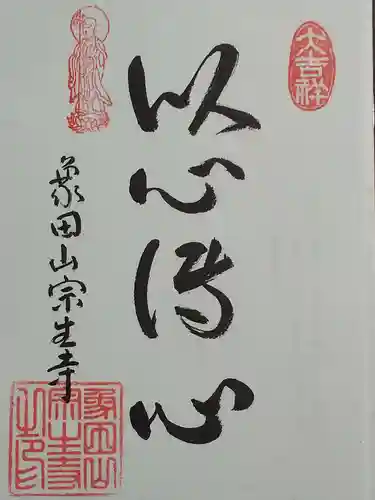 大吉祥
以心傳心
象田山宗生寺
象田山
宗生寺
之印